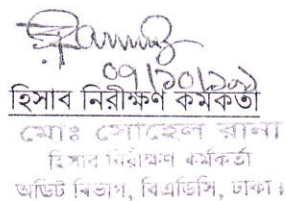 ০৭/১০/২০২১
হিসাব নিরীক্ষণ কর্মকর্তা
মোঃ সোহেল রানা
হিসাব নিরীক্ষণ কর্মকর্তা
অডিট বিভাগ, বিএডিসি, ঢাকা।